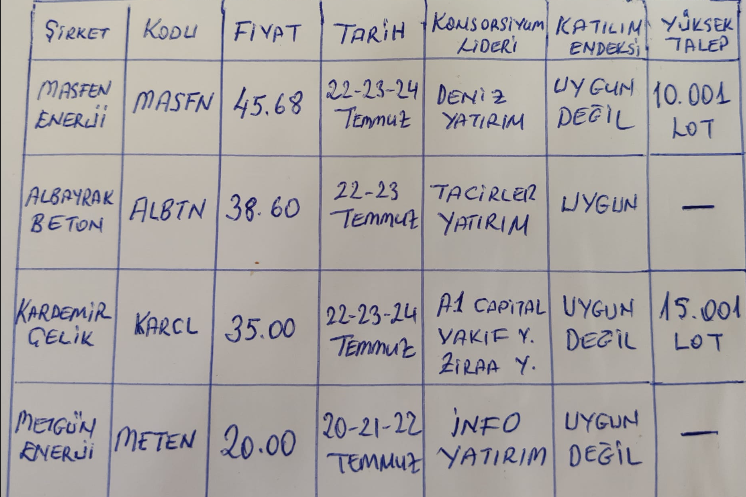 ŞİRKET
KODU
FİYAT
TARİH
KONSORSİYUM
LİDERİ
KATILIM
ENDEKSİ
YÜKSEK
TALEP
MASFEN
ENERJİ
MASFN
45.68
22-23-24
TEMMUZ
DENİZ
YATIRIM
UYGUN
DEĞİL
10.001
LOT
ALBAYRAK
BETON
ALBTN
38.60
22-23
TEMMUZ
TACİRLER
YATIRIM
UYGUN
—
KARDEMİR
ÇELİK
KARCL
35.00
22-23-24
TEMMUZ
A1 CAPİTAL
VAKIF Y.
ZİRAA Y.
UYGUN
DEĞİL
15.001
LOT
METGÜN
ENERJİ
METEN
20.00
20-21-22
TEMMUZ
İNFO
YATIRIM
UYGUN
DEĞİL
—